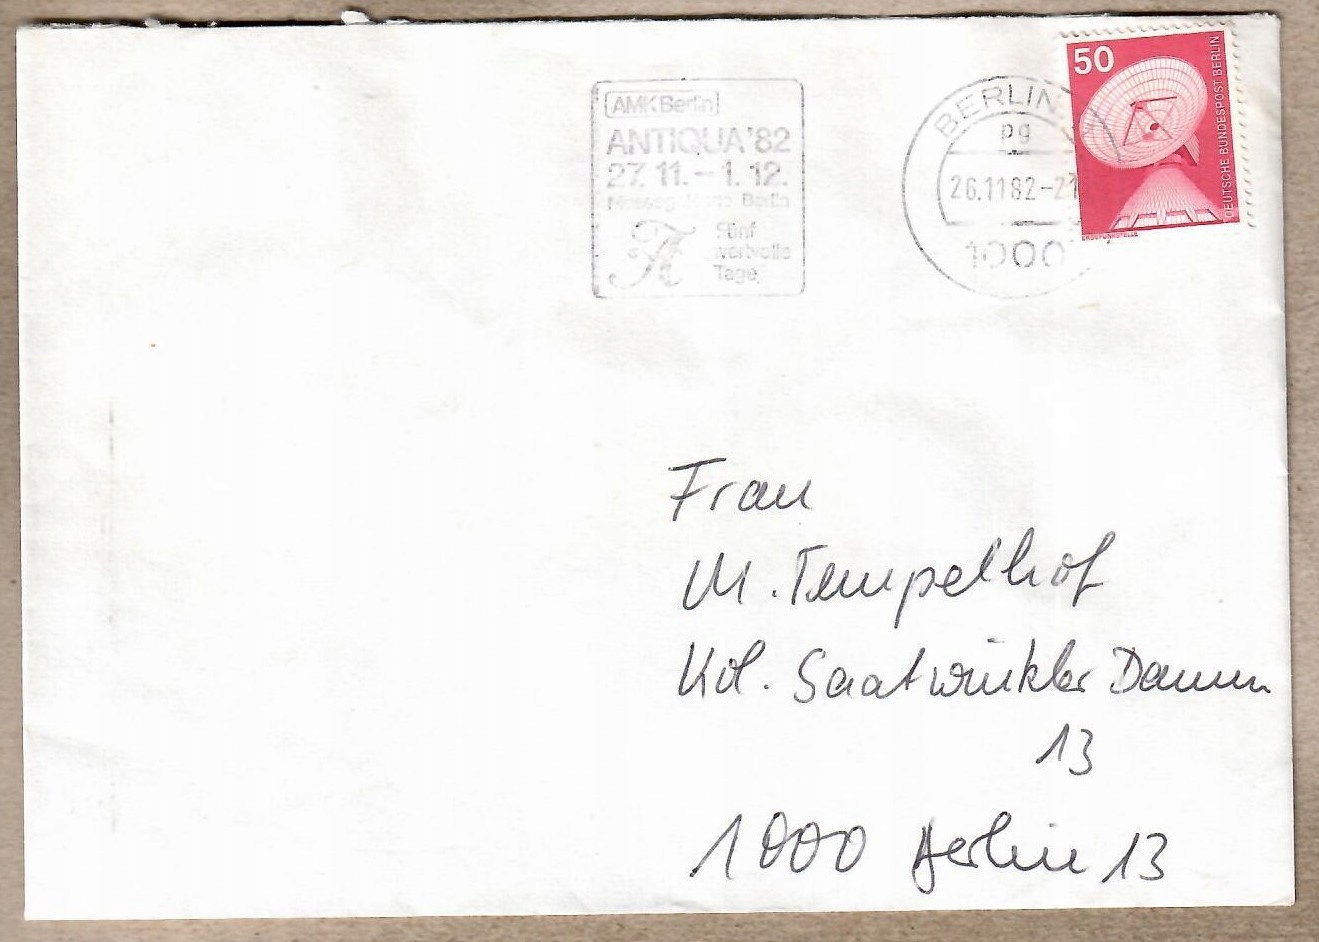 AMK Berlin
ANTIQUA '82
27. 11. – 1. 12.
Berlin
Fünf
wertvolle
Tage
BERLIN
pg
26.11 82 – 21
1000
50
DEUTSCHE BUNDESPOST BERLIN
ERDEFUNKSTELLE
Frau
M. Tempelhof
Kol. Saatwinkler Damm
13
1000 Berlin 13